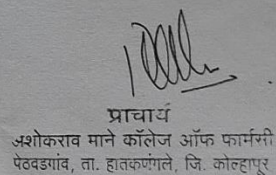 प्राचार्य
अशोकराव माने कॉलेज ऑफ फार्मसी
पेठवडगांव, ता. हातकणंगले, जि. कोल्हापूर